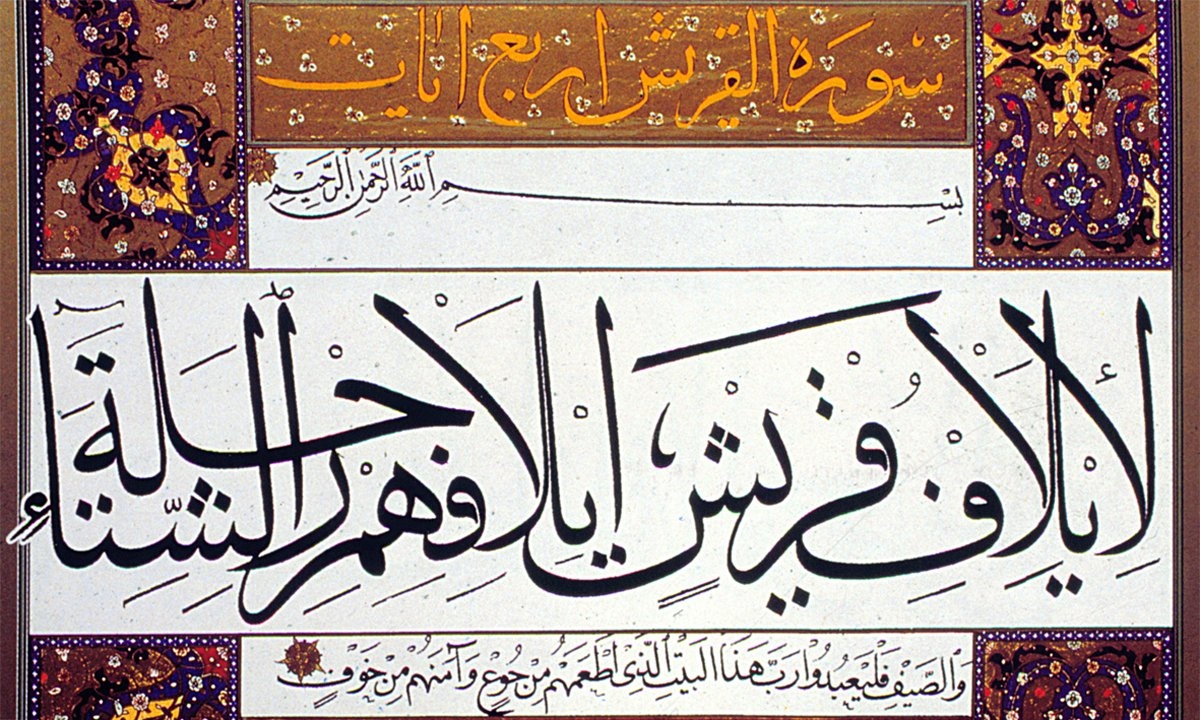 سورة القريش اربع اٰيات
بِسْمِ اللّٰهِ الرَّحْمٰنِ الرَّحِيْمِ
لِأِيْلَافِ قُرَيْشٍ اِيْلَافِهِمْ رِحْلَةَ الشِّتَاءِ
وَالصَّيْفِ فَلْيَعْبُدُوْا رَبَّ هٰذَا الْبَيْتِ الَّذِيْ اَطْعَمَهُمْ مِنْ جُوْعٍ وَآمَنَهُمْ مِنْ خَوْفٍ